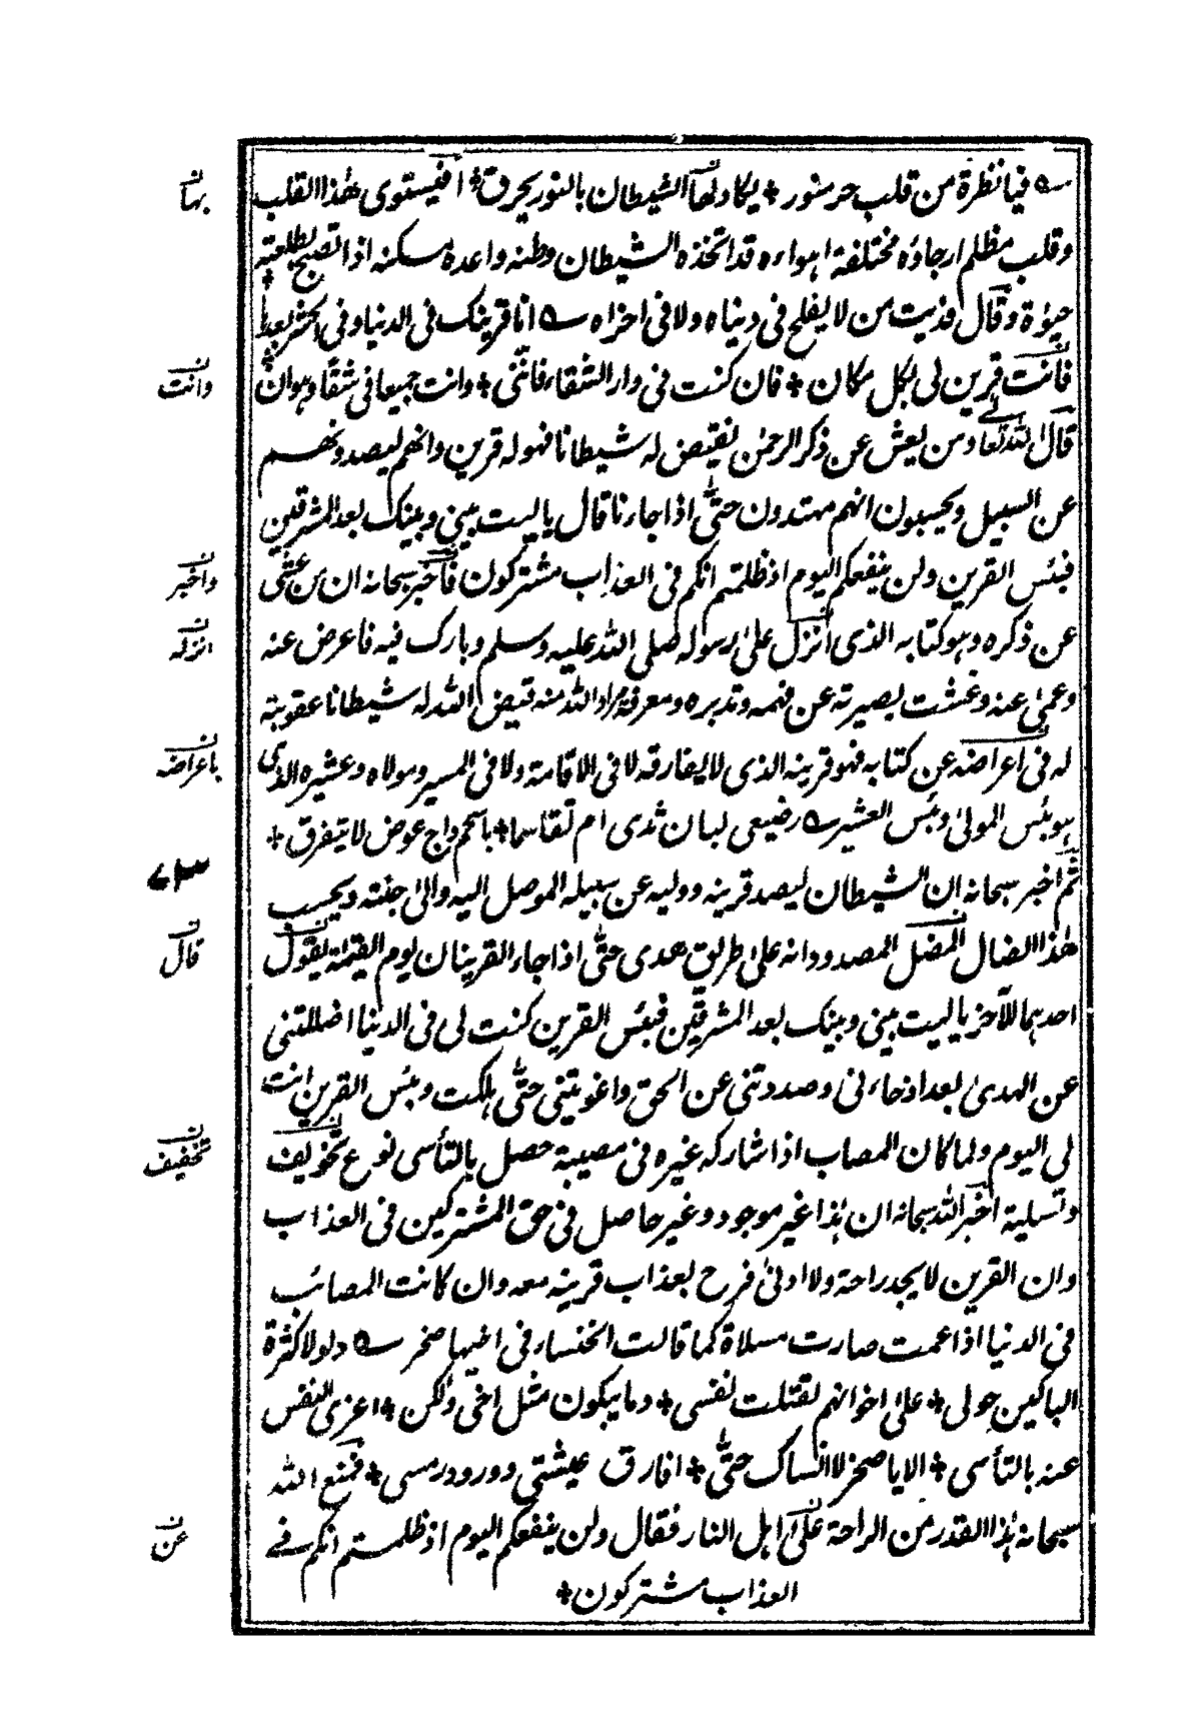 فيا نظرة من قلب حر منور * يكاد لها الشيطان بالنور يحرق * أفيستوى هٰذا القلب
وقلب مظلم ارجاؤه مختلفة اهواءه قد اتخذه الشيطان وطنه واعده مسكنه اذا تصبح بطلعته
حيّوة وقال فديت من لا يفلح فى دنياه ولا فى اخراه انا قرينك فى الدنيا وفى الحشر بعدها
فانت قرين لى بكل مكان * فان كنت فى دار الشقاء فاننى * وانت جميعا فى شقا وهوان
قال الله تعالے ومن يعش عن ذكر الرحمٰن نقيض له شيطانا فهو له قرين وانهم ليصدونهم
عن السبيل ويحسبون انهم مهتدون حتّٰى اذا جاءنا قال ياليت بينى وبينك بعد المشرقين
فبئس القرين ولن ينفعكم اليوم اذ ظلمتم انكم فى العذاب مشتركون فاخبر سبحانه ان من عشى
عن ذكره وهو كتابه الذى انزل علىٰ رسوله صلى الله عليه وسلم وبارك فيه فاعرض عنه
وعمى عنه وغشت بصيرته عن فهمه وتدبره ومعرفة مراد الله منه قيض الله له شيطانا عقوبة
له فى اعراضه عن كتابه فهو قرينه الذى لا يفارقه لا فى الاقامة ولا فى المسير ومولاه وعشيره الذى
هو بئس المولىٰ وبئس العشير رضيعى لبان ثدى ام تقاسما * باسحم داج عوض لا يتفرق *
ثم اخبر سبحانه ان الشيطان ليصد قرينه ووليه عن سبيله الموصل اليه والىٰ جنته ويحسب
هٰذا الضال المضل المصدود انه علىٰ طريق هدى حتّٰى اذا جاء القرينان يوم القيٰمة يقول
احدهما للآخر ياليت بينى وبينك بعد المشرقين فبئس القرين كنت لى فى الدنيا اضللتنى
عن الهدىٰ بعد اذ جاءنى وصددتنى عن الحق واغويتنى حتّٰى هلكت وبئس القرين انت
لى اليوم ولما كان المصاب اذا شاركه غيره فى مصيبة حصل بالتأسى نوع تخويف
وتسلية اخبر الله سبحانه ان هٰذا غير موجود وغير حاصل فى حق المشتركين فى العذاب
وان القرين لا يجد راحة ولا ادنىٰ فرح بعذاب قرينه معه وان كانت المصائب
فى الدنيا اذا عمت صارت مسلاة كما قالت الخنساء فى اخيها صخر ولولا كثرة
الباكين حولى * علىٰ اخوانهم لقتلت نفسى * وما يبكون مثل اخى ولٰكن * اعزى النفس
عنه بالتأسى * الا يا صخر لا انساك حتّٰى * افارق عيشتى وورود رمسى * فمنع الله
سبحانه هٰذا القدر من الراحة علىٰ اهل النار فقال ولن ينفعكم اليوم اذ ظلمتم انكم فے
العذاب مشتركون *
بهان
وانت
واخبر
انزله
باعراضه
قال
تخفيف
عن